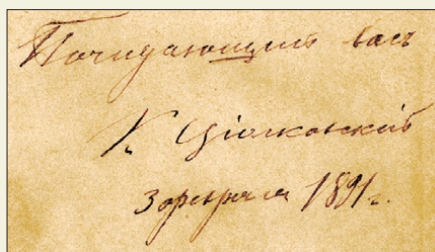 Почитающий васъ
К Ціолковскій
3 февраля 1891 г.